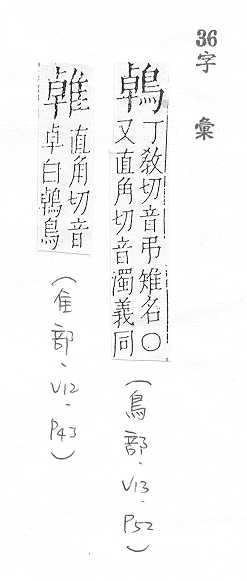 36字彙
鵫
丁教切音弔雉名〇
又直角切音濁義同
(鳥部.V13.P52)
直角切音
卓白鵫鳥
(隹部.V12.P43)